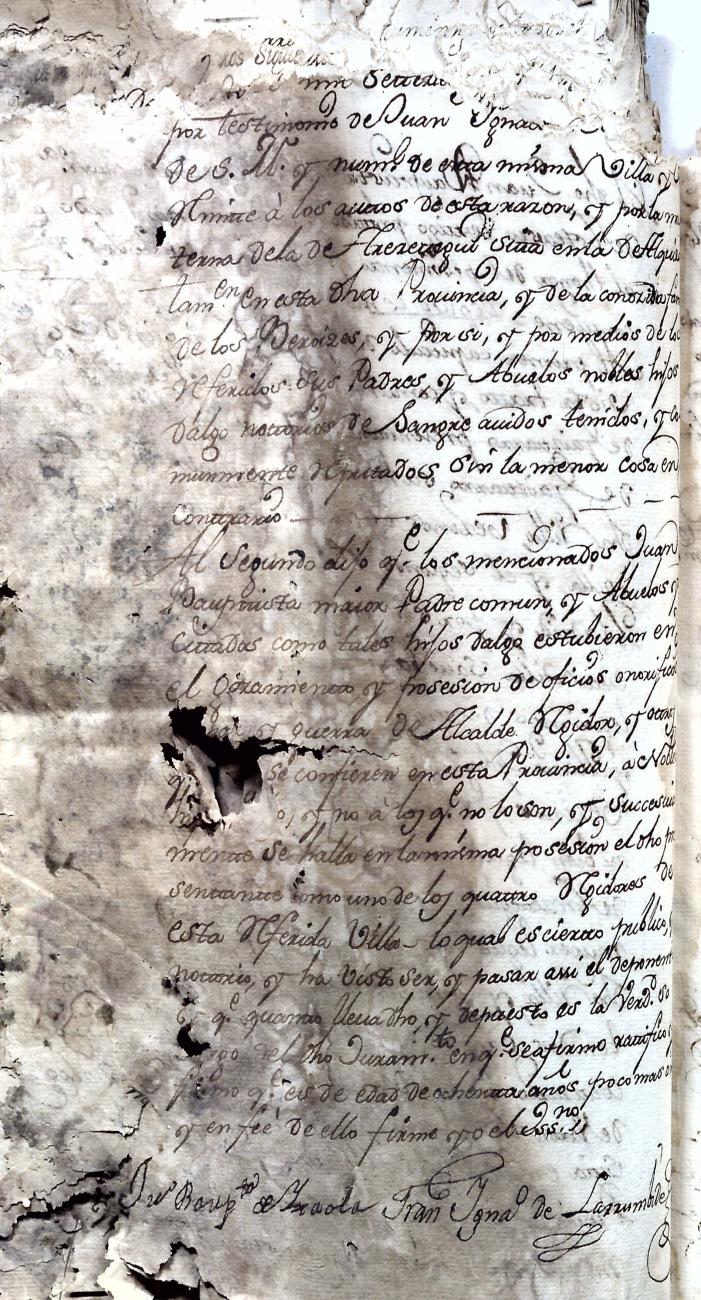 y los Siguie
mil Setteci
por testimonio de Juan Ygnac
de S. M. y num.l de esta misma Villa y
Rmitte à los autos de esta razon, y por la ma
terna dela de sitta en la de Alquis
tam.en en esta dha Prouincia, y de la conozida fam
de los y por si, y por medios de los
Rferidos sus Padres, y Abuelos nobles hijos
dalgo nottorios de Sangre auidos tenidos, y co
munmente Rputados sin la menor cosa en
Conttrario
Al Segundo dijo q.e los mencionados Juan
Baupttista maior Padre comun, y Abuelos
Cittados como tales hijos dalgo estubieron en
el y posesion de oficios onorifico
y guerra de Alcalde Rgidor, y ottros
q. se confieren en esta Prouincia, à Noble
o, y no à los q.e no lo son, y succesiua
mentte se halla en la misma posesion el dho pr
sentantte como uno de los quattro Rgidores de
esta Rferida Villa lo qual es cierto publico, y
nottorio, y ha visto ser, y pasar assi el deponent
Y q.e quanto lleua dho, y depuesto es la Verd.d so
cargo del dho Juram.to en q.e se afirmo rattifico y
firmo q.e es de edad de ochentta años poco mas o
y en feè de ello firme yo el Ess.no
Ju.n Baup.ta de Fran.co Ygna.o de Larrumbide